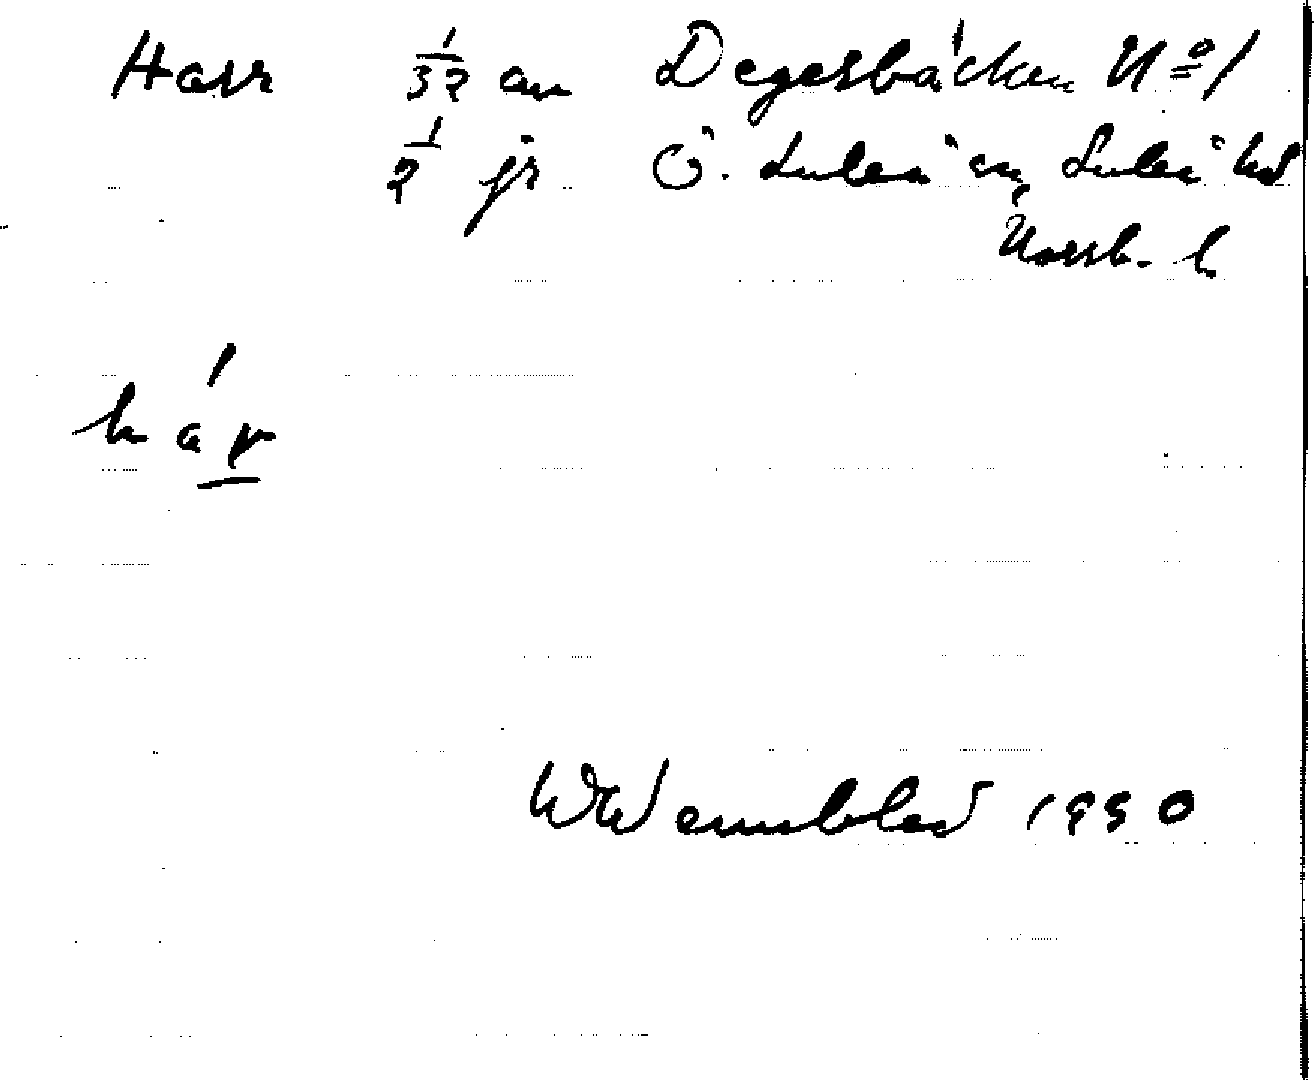 Harr 1/32 an Degerbäcken Nº 1
1/2 jr Ö. Luleå sn, Luleå hd
Norrb. l.
hár
WWennblad 1930